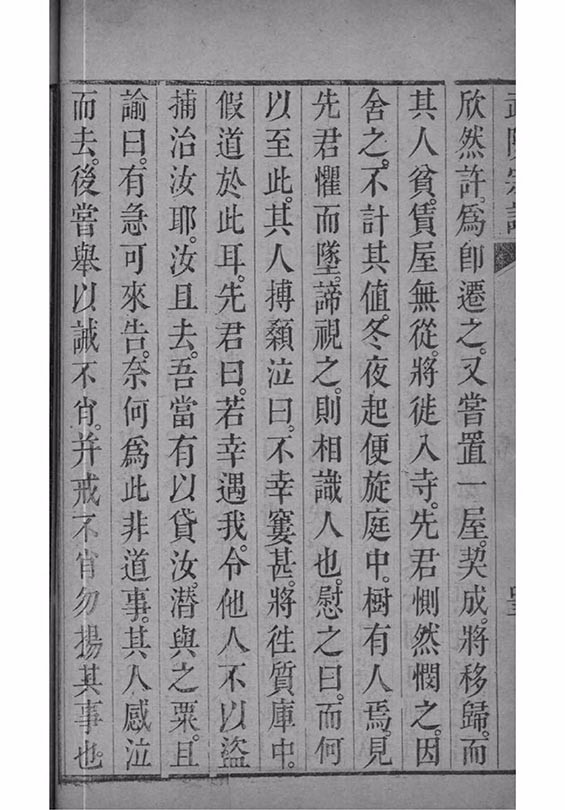 欣然許。爲卽遷之。又嘗置一屋。契成。將移歸。而
其人貧。賃屋無從。將徙入寺。先君惻然憫之。因
舍之。不計其值。冬夜起便旋庭中。樹有人焉。見
先君懼而墜。諦視之。則相識人也。慰之曰。而何
以至此。其人搏顙泣曰。不幸窶甚。將往質庫中。
假道於此耳。先君曰。若幸遇我。令他人不以盜
捕治汝耶。汝且去。吾當有以貸汝。潛與之粟。且
諭曰。有急可來告。奈何爲此非道事。其人感泣
而去。後嘗舉以誡不肖。并戒不肖勿揚其事也。